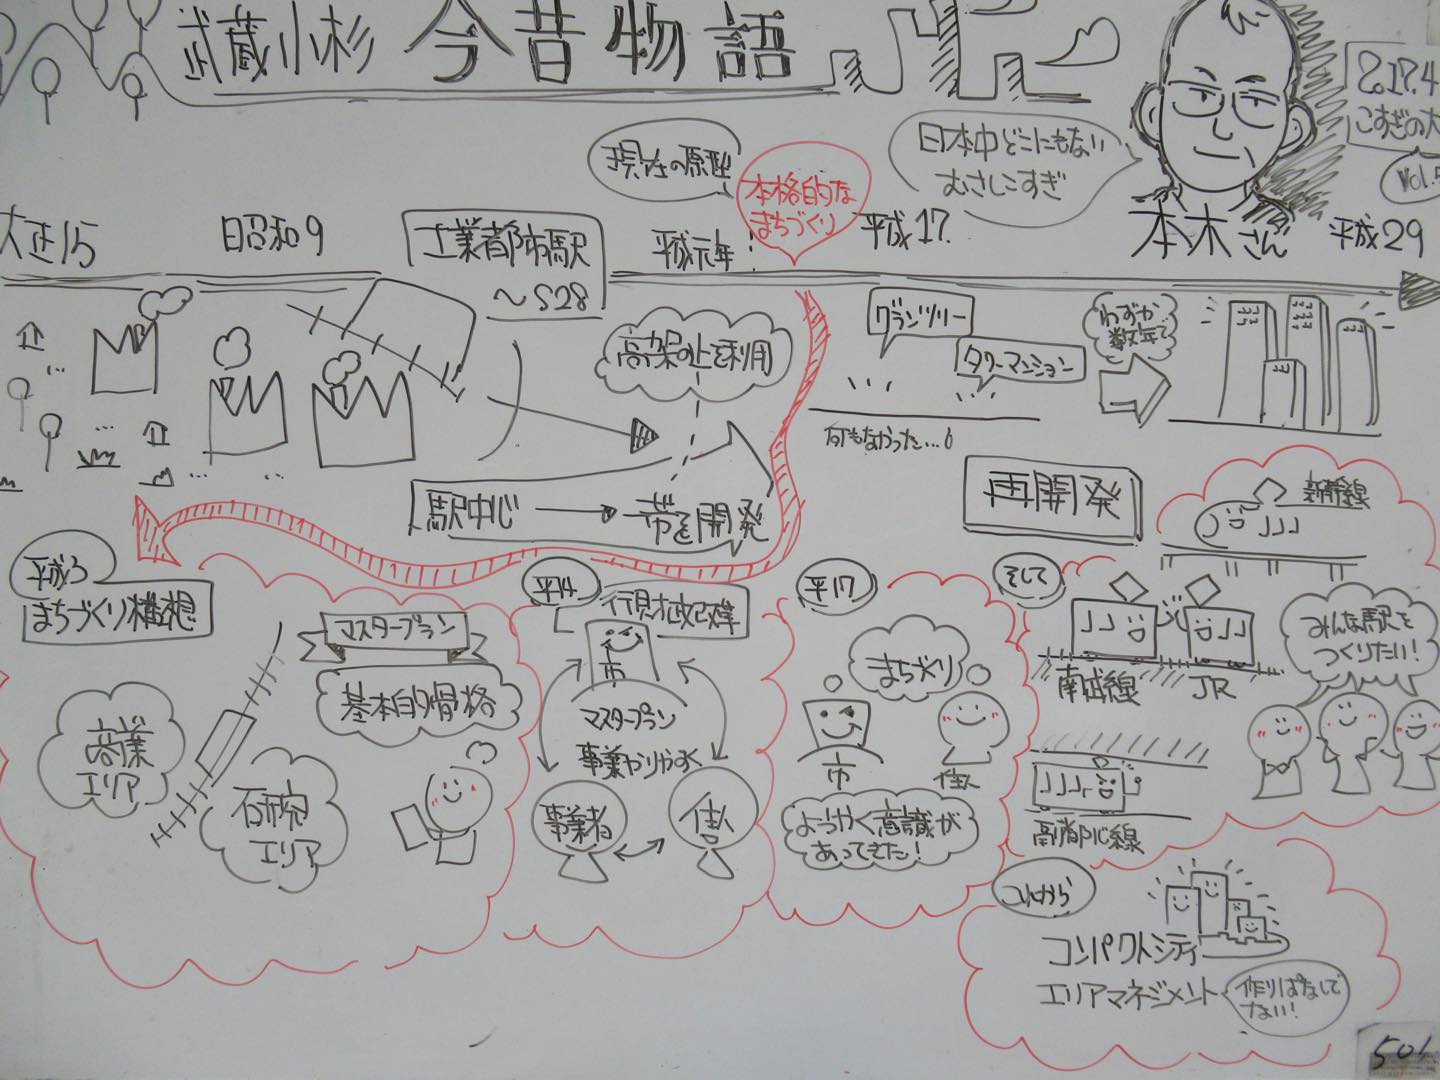 武蔵小杉 今昔物語
2017.4
こすぎの大
Vol.5
日本中どこにもない
むさしこすぎ
本木さん
現在の原型
本格的な
まちづくり
大正15
昭和9
工業都市駅
～S28
平成元年
平成17
平成29
高架の止を利用
グランツリー
タワーマンション
わずか
数年で
何もなかった…
駅中心
一帯を開発
再開発
新幹線
平成3
まちづくり構想
マスタープラン
基本的骨格
商業
エリア
研究
エリア
平14
行財政改革
市
マスタープラン
事業やりやすく
事業者
住人
平17
まちづくり
市
住人
ようやく意識が
あってきた!
そして
南武線
JR
みんな駅を
つくりたい!
これから
コンパクトシティ
エリアマネジメント
作りぱなしで
ない!
501